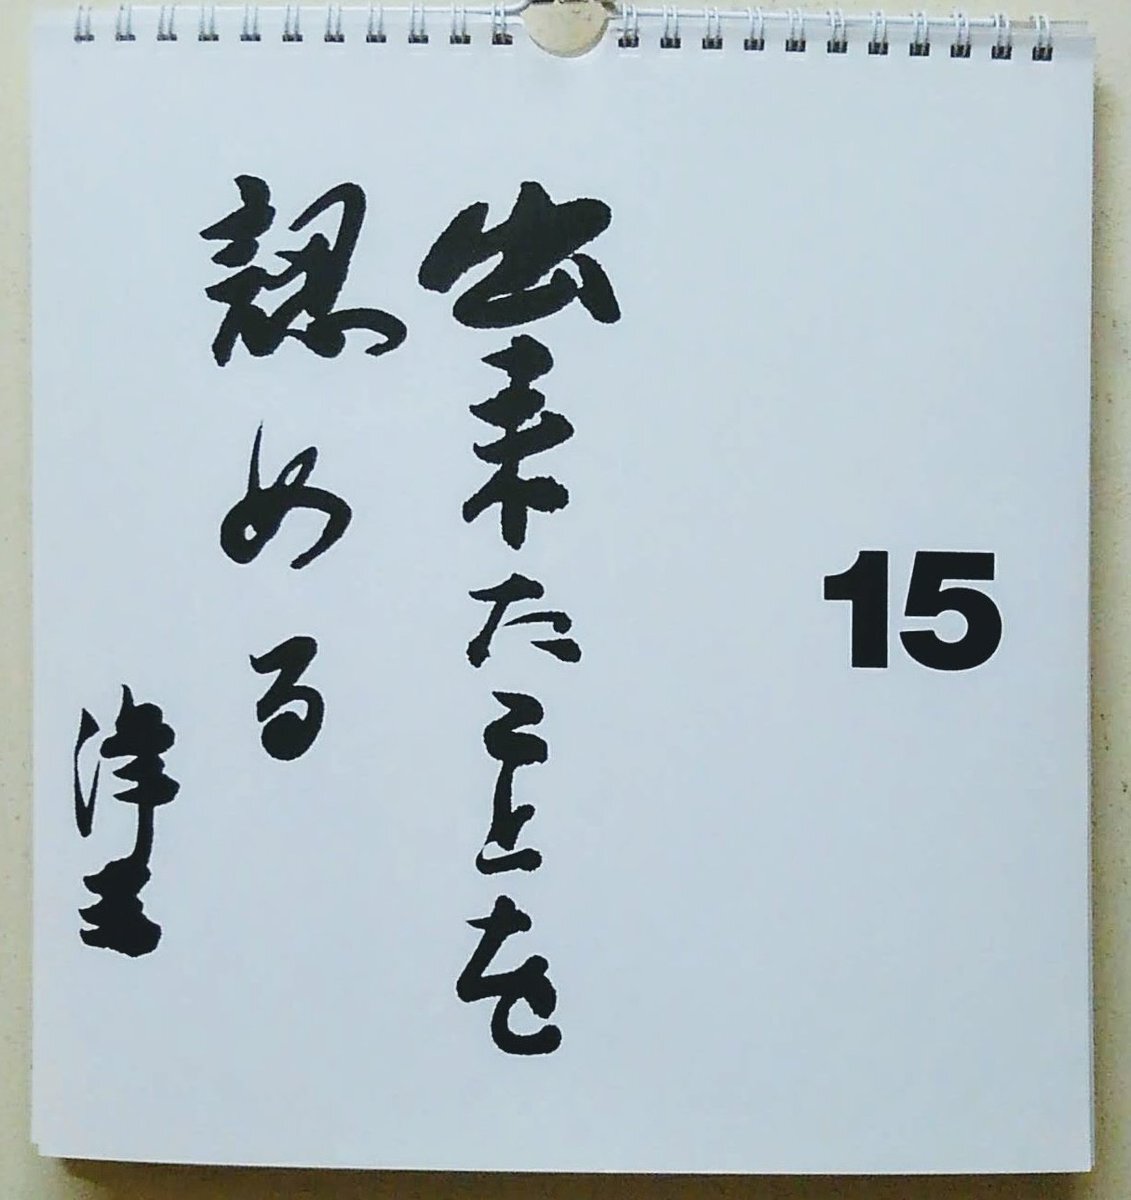 15
出来たことを
認める